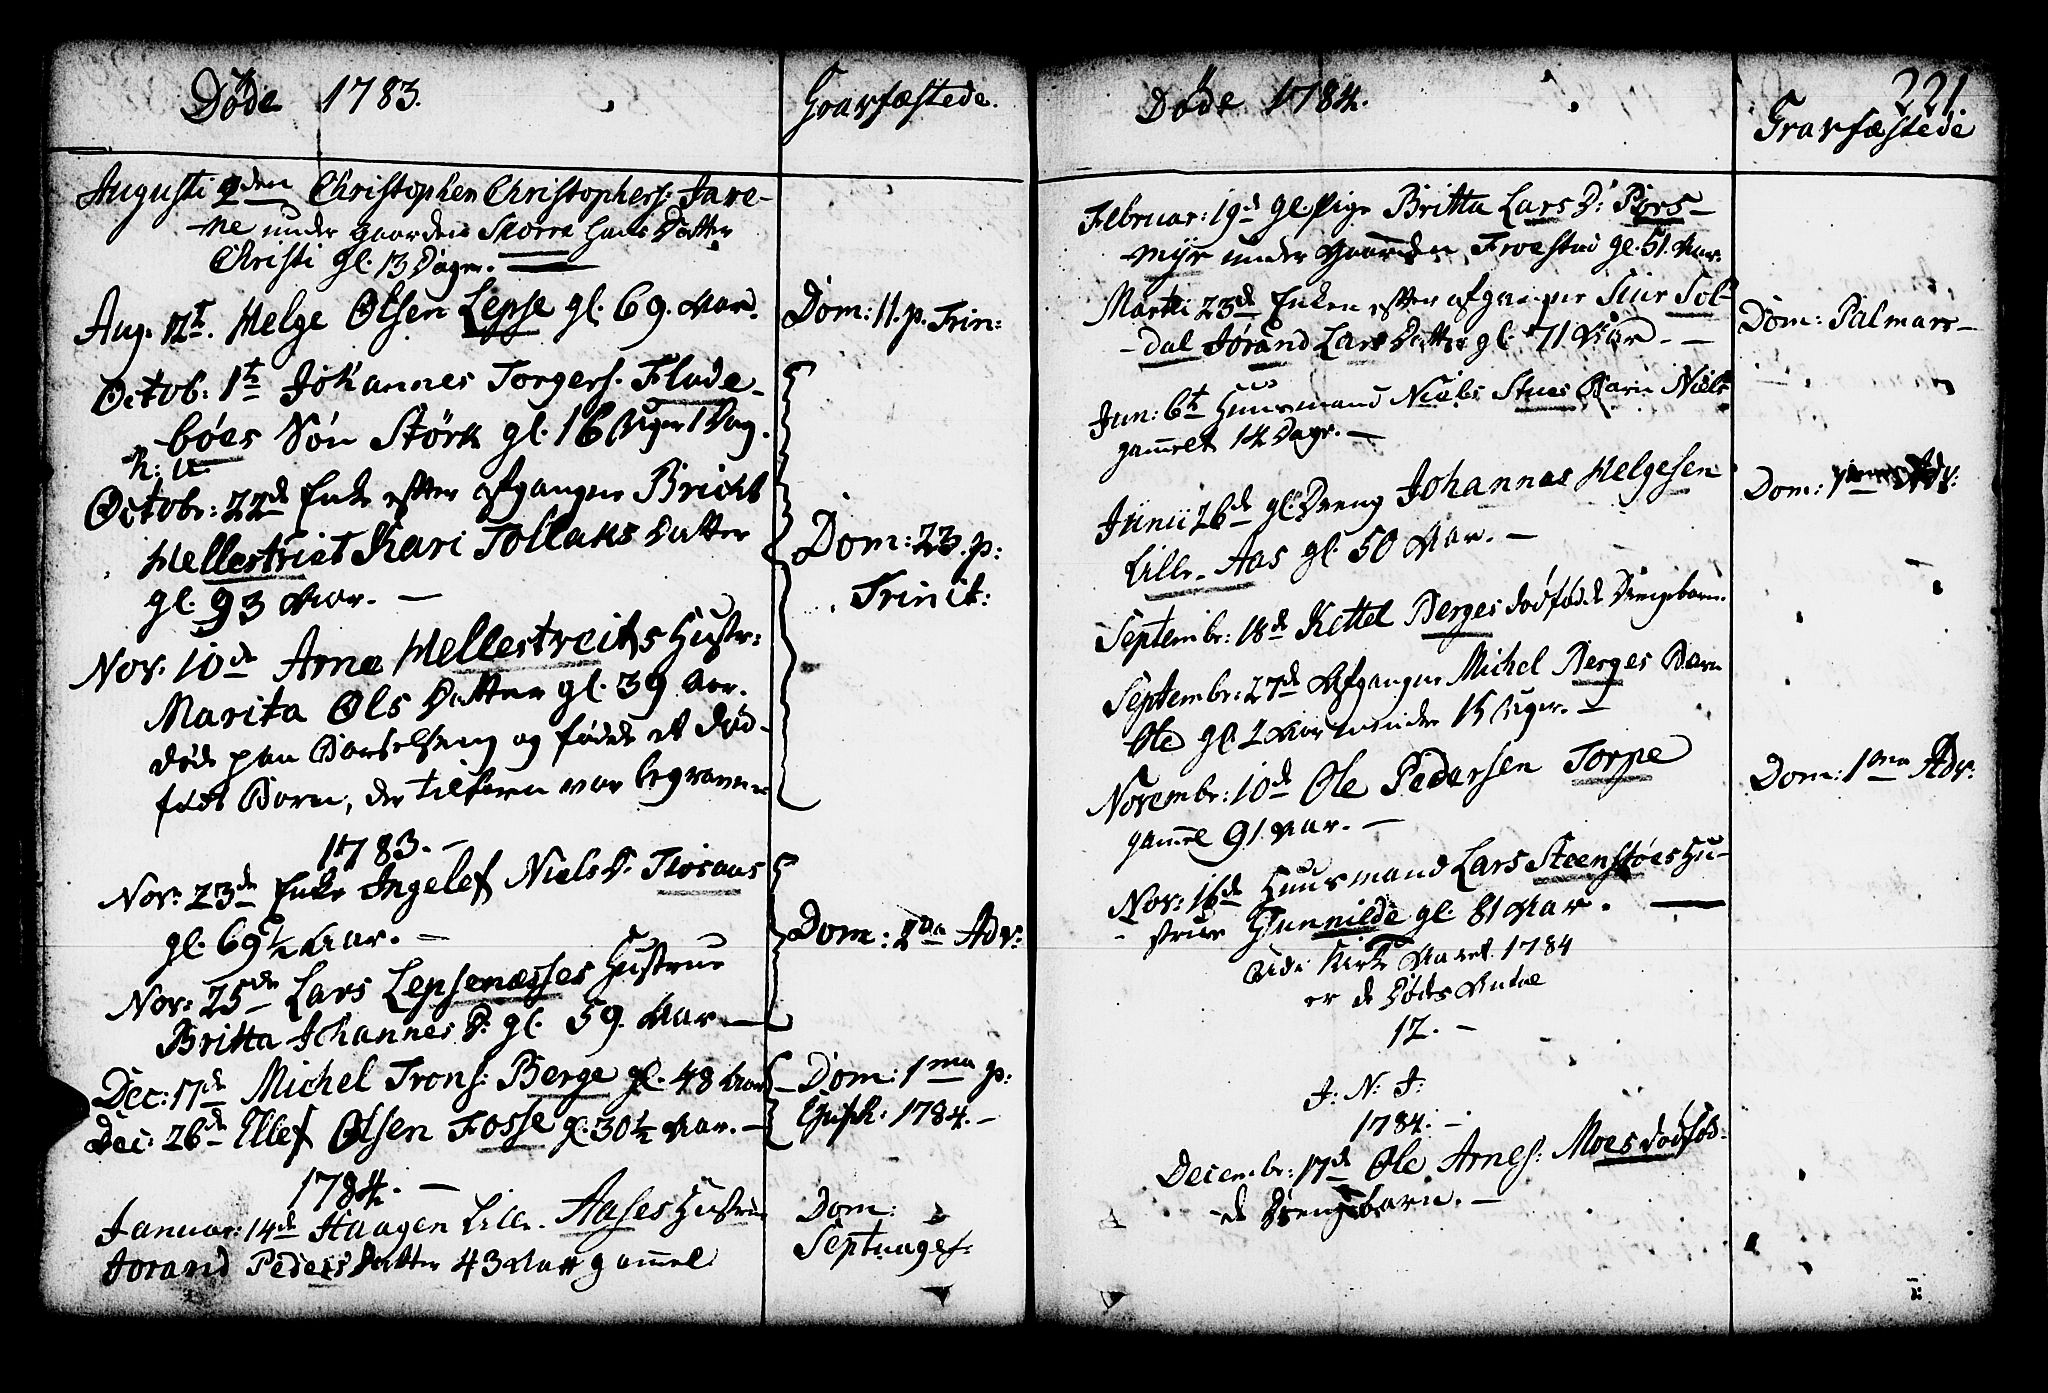 Døde 1783.
Graffæstede.
Augusti 2den Christopher Christophers: Jare-
ne under gaarden Skorre hans Datter
Christi gl. 13 Dage.
Aug. 12t. Helge Olsen Lepse gl. 69. Aar.
Dom: 11. p. Trin:
Octob: 1t Johannes Torgers. Flade-
böes Sön Störk gl. 16 Uger 1 Dag.
Octobr: 22d Enke efter afgangne Bricht
Hellestrict Kari Tollaks Datter
gl. 93 Aar.
Dom: 23. p:
Trinit:
Nov. 10d Arne Hellestreits Hustr:
Marita Ols Datter gl. 39 Aar.
døde paa Barselseng og fødde et død-
født Barn, der tilforn var begraven
1783.
Nov: 23d Enke Ingelef Niels D. Tiosaas
gl. 69½ Aar.
Nov: 25de Lars Lepsenæsses Hustrue
Britta Johannes D. gl. 59. Aar
Dom: 2da Adv:
Dec: 17d Michel Trons: Berge gl. 48 Aar
Dec: 26d Ellef Olsen Fosse gl. 30½ Aar.
Dom: 1ma p:
Epiph: 1784.
1784.
Januar: 14d Haagen Lille Aases Hustrue
Jorand Peders Datter 43 Aar gamel
Dom:
Septuages:
Døde 1784.
221.
Gravfæstede
Februar: 19d gl. Pige Britta Lars D: Pors-
myr under Gaarden Froestad gl. 51. Aar.
Martii 23d Enken efter afgangne Siur Sol-
dal Jørand Lars Datter gl. 71 Aar.
Dom: Palmar
Jun: 6t Huusmand Niels Stues Barn Niels
gamelt 14 Dage.
Junii 26d gl. Dreng Johannes Helgesen
Lille Aas gl. 50 Aar.
Dom: 1 Adv:
Septembr: 18d Kettel Berges dødfødde Drengebarn.
Septembr: 27d Afgangne Michel Berges Barn
Ole gl. 2 Aar mindre 15 Uger.
Novembr: 10d Ole Pedersen Torpe
gamel 91. Aar.
Dom: 1ma Adv:
Nov: 16d Huusmand Lars Steenstøes Hu-
strue Gunnilde gl. 81 Aar.
Udi Kirke Aaret 1784
er de Dødes Antal
12.
J: N: J:
1784.
Decembr: 17d Ole Arnes: Moes dødfød-
de Drengebarn.